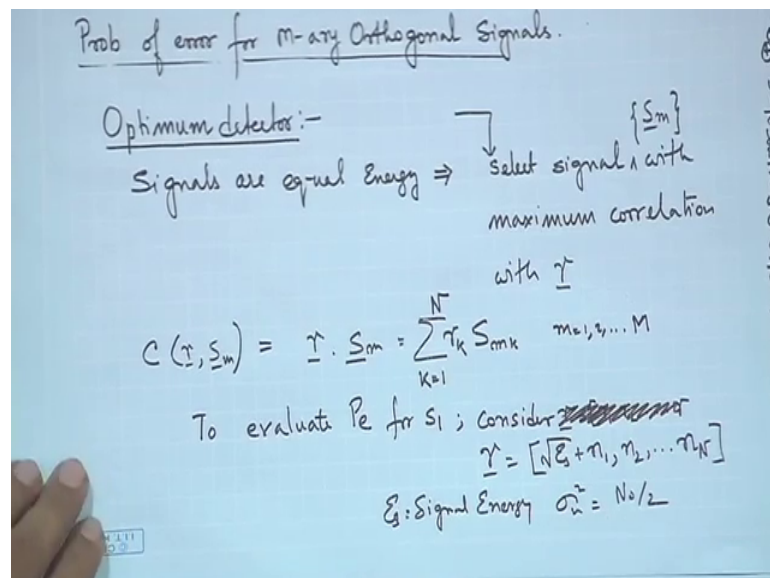 Prob of error for M-ary Orthogonal Signals.
Optimum detector:-
{Sm}
Signals are equal Energy ⇒ select signal ∧ with
maximum correlation
with r
C (r, Sm) = r . Sm = N∑K=1 rk Smk m=1,2,... M
To evaluate Pe for S1 ; consider
r = [√Es + n1, n2, ... nN]
Es : Signal Energy σn² = No/2